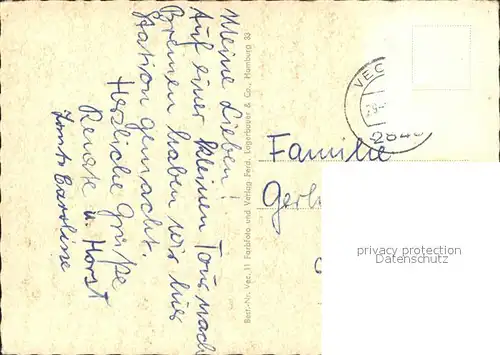 Meine Lieben!
Auf einer kleinen Tour nach
Bremen haben wir hier
Station gemacht.
Herzliche Grüße
Renate u. Horst
Tante Caroline
Best.-Nr. Vec. 11 Farbfoto und Verlag Ferd. Lagerbauer & Co., Hamburg 33
VEC
284
Familie
Gerh
privacy protection
Datenschutz